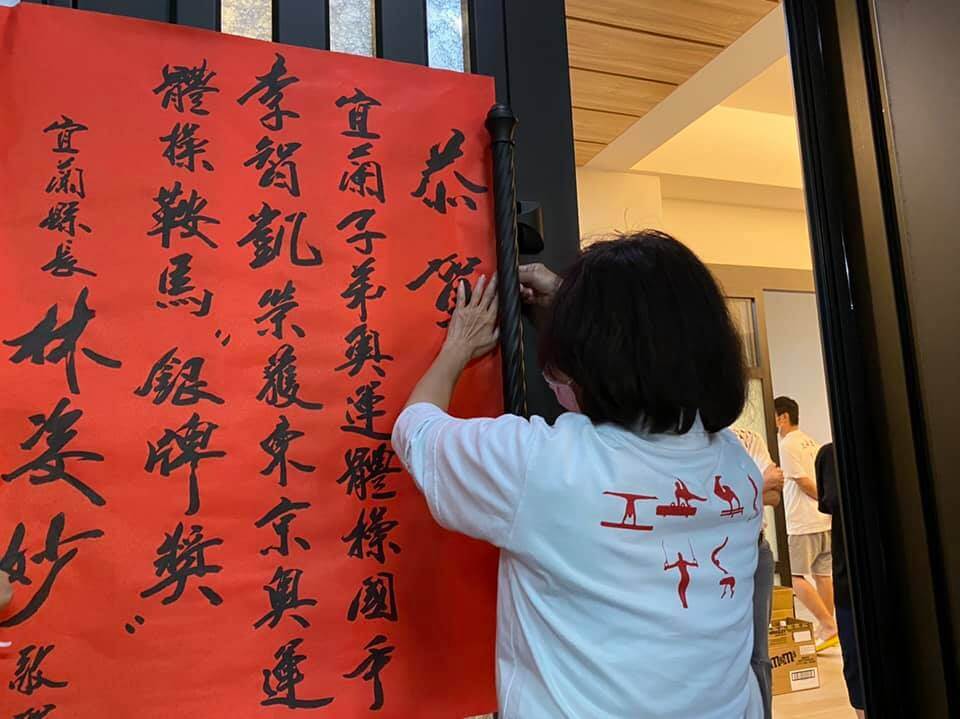 恭賀
宜蘭子弟奧運體操國手
李智凱榮獲東京奧運
體操鞍馬〝銀牌獎〞
宜蘭縣長 林姿妙 敬
m&m's